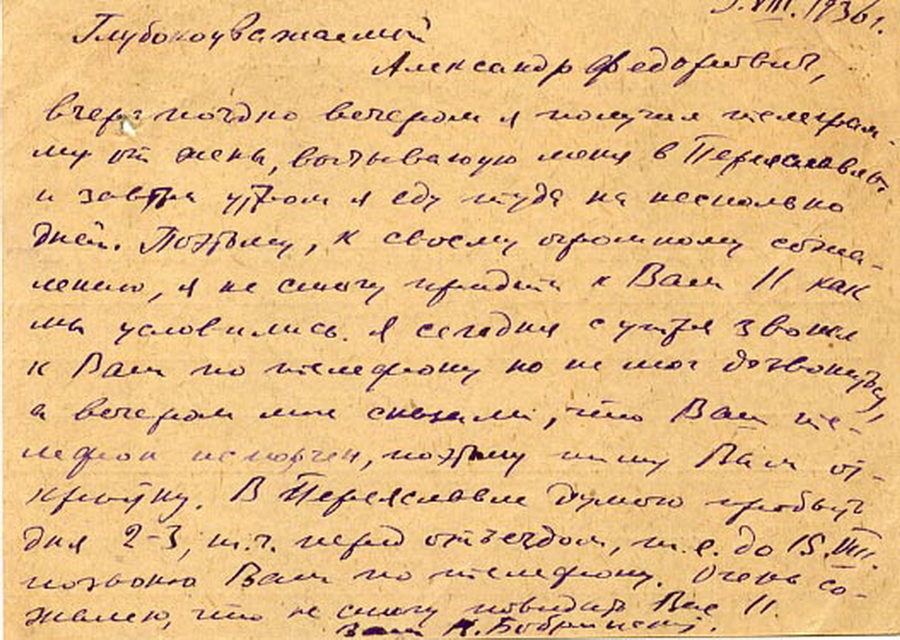 VIII. 1936 г.
Глубокоуважаемый
Александр Федорович,
вчера поздно вечером я получил телеграм-
му от жены, вызывающую меня в Переяславль.
и завтра утром я еду туда на несколько
дней. Поэтому, к своему огромному сожа-
лению, я не смогу придти к Вам 11 как
мы условились. Я сегодня с утра звонил
к Вам по телефону но не мог дозвониться,
а вечером мне сказали, что Ваш те-
лефон испорчен, поэтому пишу Вам от-
крытку. В Переяславле думаю пробыть
дня 2-3, т.ч. перед отъездом, т.е. до 15.VIII.
позвоню Вам по телефону. Очень со-
жалею, что не смогу повидать Вас 11.
Ваш Н. Бобринский.